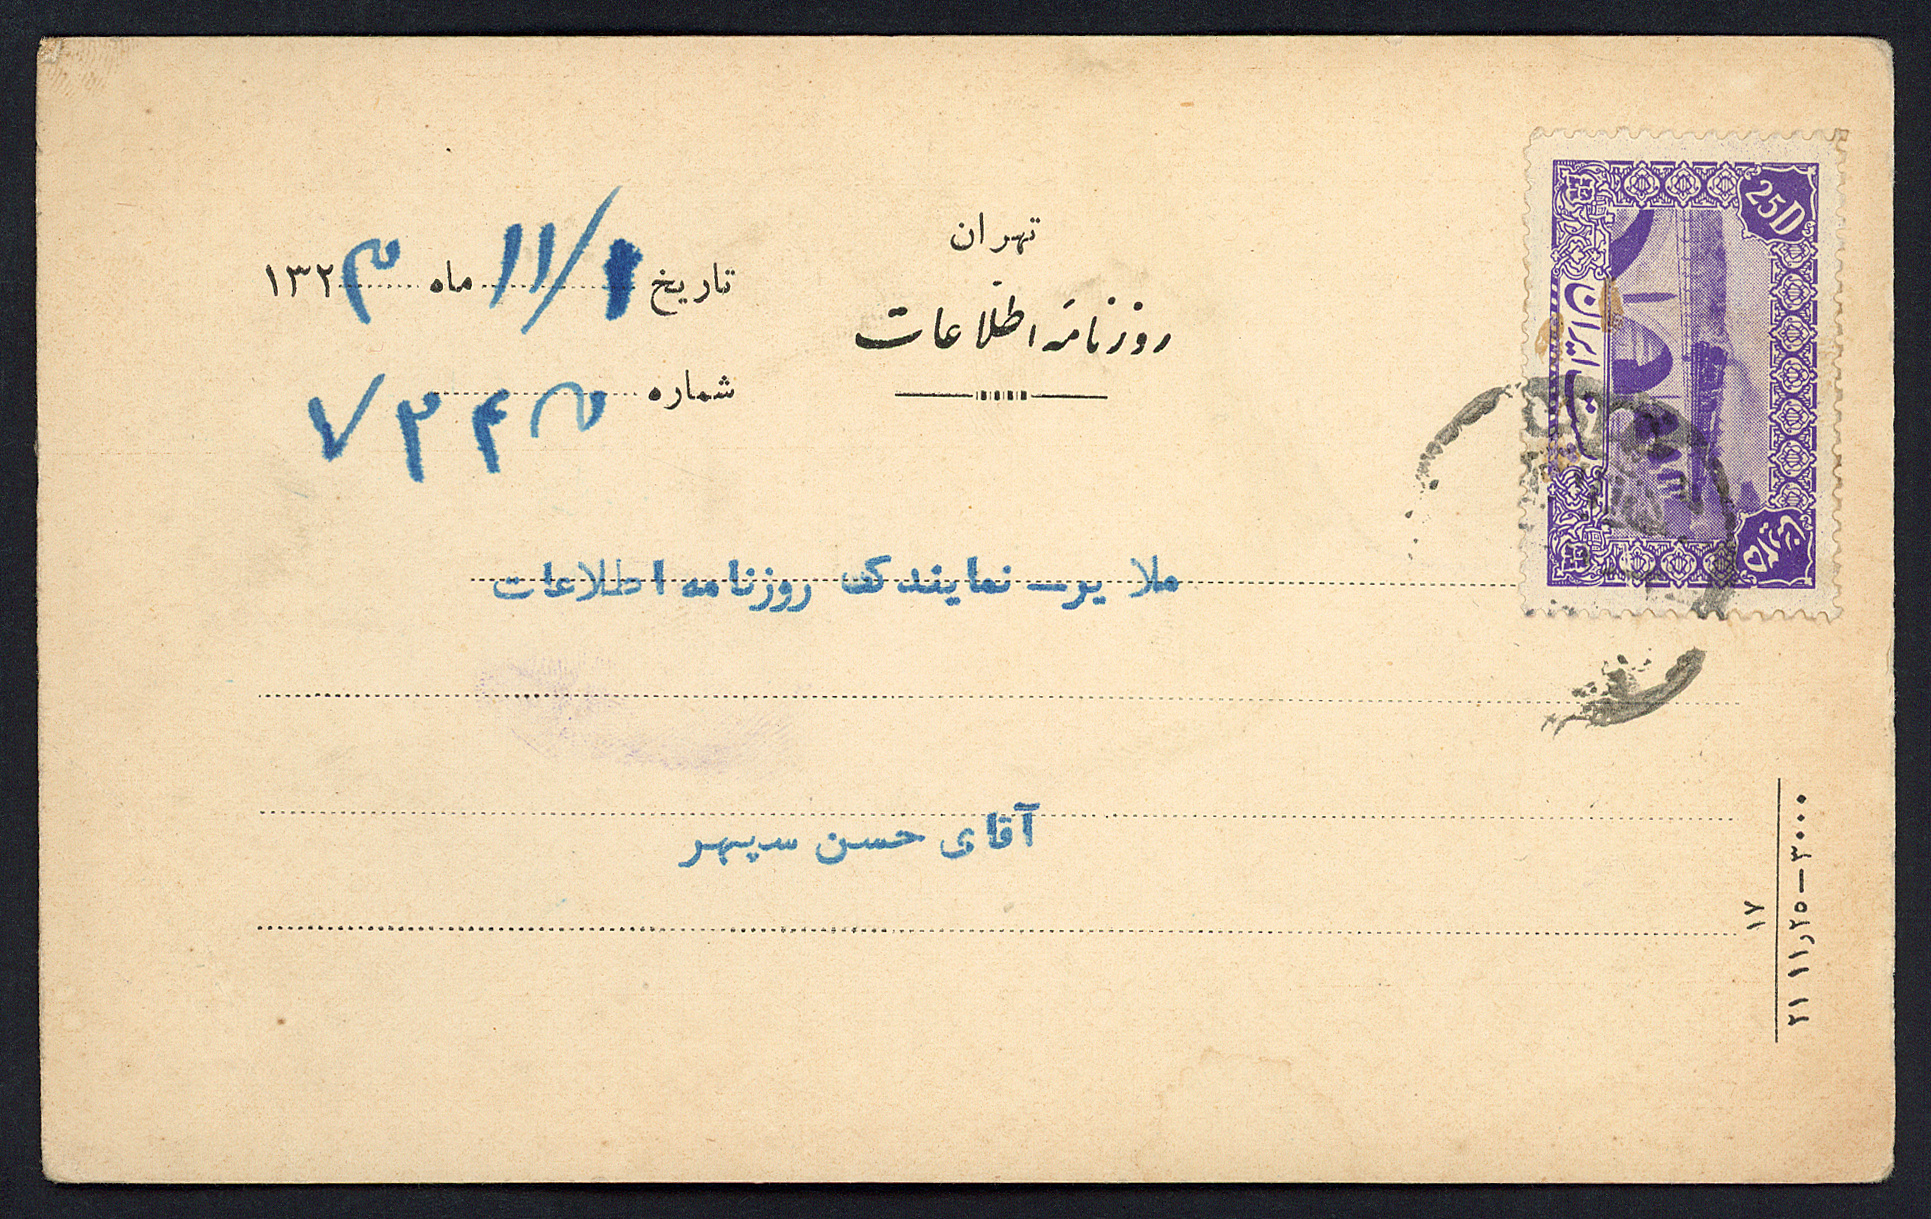 تهران
روزنامه اطلاعات
تاریخ ۱۱/۱ ماه ۱۳۲۳
شماره ۷۲۴۳
ملایر ــ نمایندگی روزنامه اطلاعات
آقای حسن سپهر
25D
ایران
۱۷
۲۱ ۱۱ر۲۵ــ۳۰۰۰